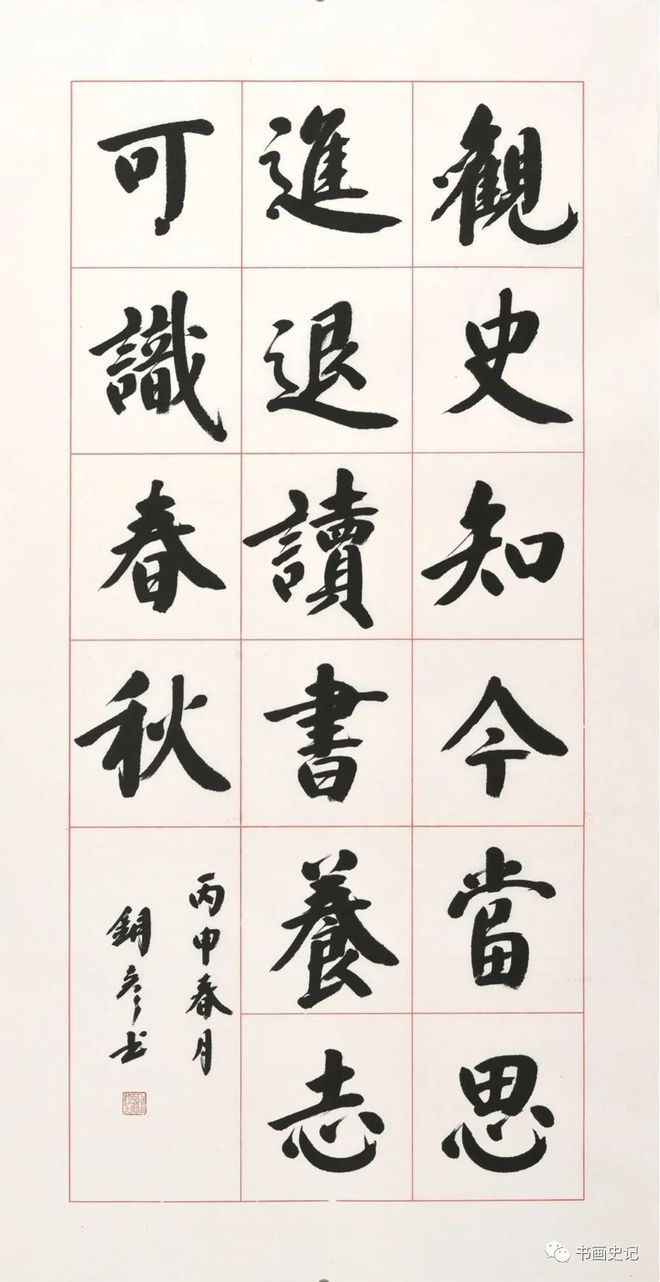 觀史知今當思
進退讀書養志
可識春秋
丙申春月
銅彥书
书画史记